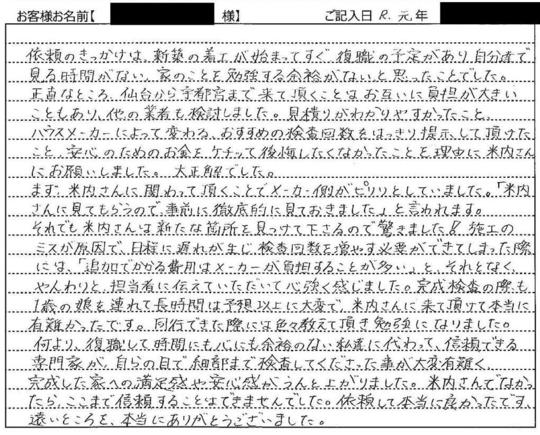 お客様お名前【　　　　　　様】　ご記入日 R. 元. 年
依頼のきっかけは、新築の着工が始まってすぐ、復職の予定があり、自分達で
見る時間がない、家のことを勉強する余裕がないと思ったことでした。
正直なところ、仙台から宇都宮まで来て頂くことはお互いに負担が大きい
こともあり、他の業者も検討しました。見積りがわかりやすかったこと、
ハウスメーカーによって変わる、おすすめの検査回数をはっきり提示して頂けた
こと、安心のためのお金をケチって後悔したくなかったことを理由に米内さん
にお願いしました。大正解でした。
まず、米内さんに関わって頂くことでメーカー側がピリリとしていました。「米内
さんに見てもらうので、事前に徹底的に見ておきました」と言われます。
それでも米内さんは新たな箇所を見つけて下さるので驚きました!! 施工の
ミスが原因で、日程に遅れが生じ、検査回数を増やす必要ができてしまった際
には、「追加でかかる費用はメーカーが負担することが多い」と、それとなく、
やんわりと、担当者に伝えていただいて心強く感じました。完成検査の際も
1歳の娘を連れて長時間は予想以上に大変で、米内さんに来て頂けて本当に
有難かったです。同行できた際には色々教えて頂き勉強になりました。
何より、復職して時間にも心にも余裕のない私達に代わって、信頼できる
専門家が、自らの目で細部まで検査してくださった事が大変有難く、
完成した家への満足感や安心感がうんと上がりました。米内さんでなかっ
たら、ここまで信頼することはできませんでした。依頼して本当に良かったです。
遠いところを、本当にありがとうございました。